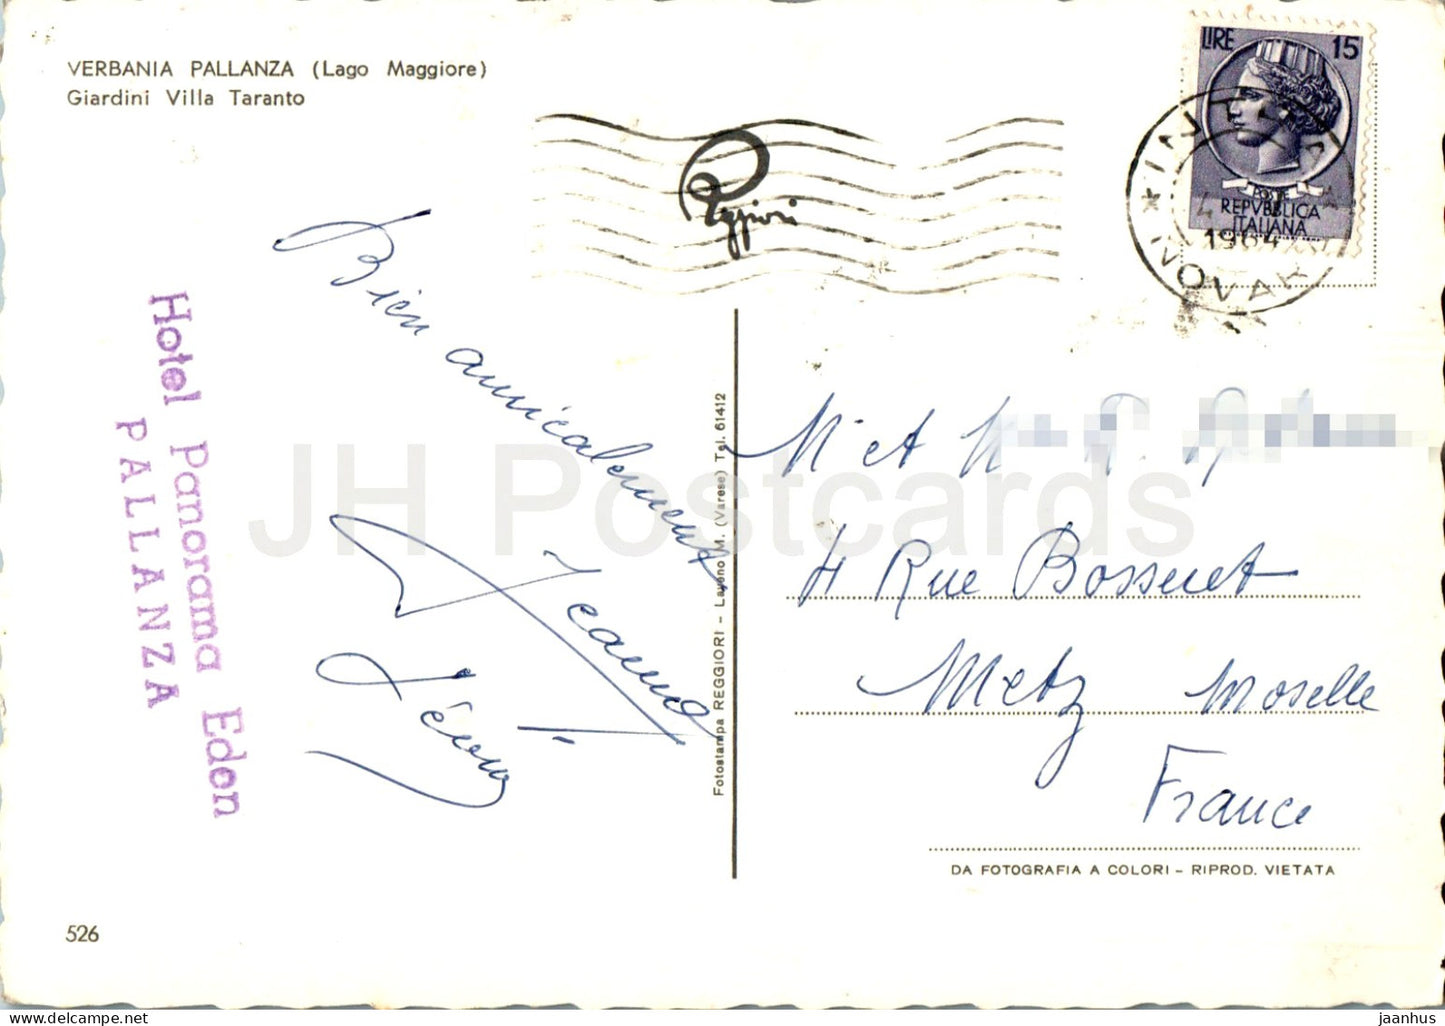 VERBANIA PALLANZA (Lago Maggiore)
Giardini Villa Taranto
LIRE 15
POSTE
REPVBBLICA
ITALIANA
1964
NOVARA
Reggiori
Hotel Panorama Edon
PALLANZA
Bien amicalement
Jeanne
Rémy
Fotostampa REGGIORI - Laveno M. (Varese) Tel. 61412
M et M
4 Rue Bossuet
Metz Moselle
France
DA FOTOGRAFIA A COLORI - RIPROD. VIETATA
526
JH Postcards
jaanhus